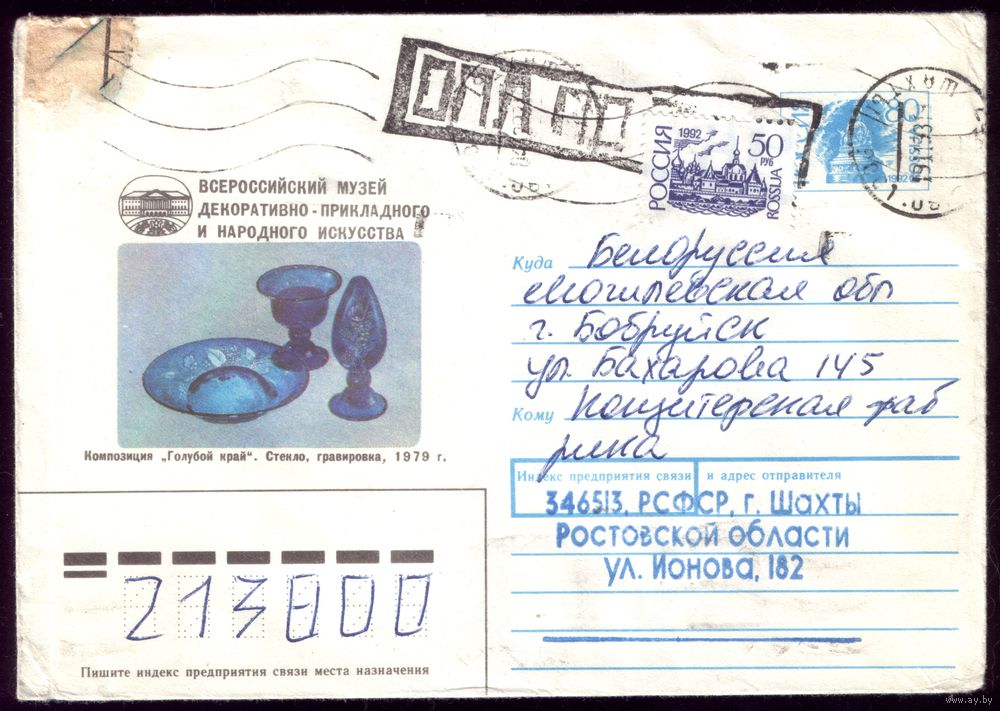 ВСЕРОССИЙСКИЙ МУЗЕЙ
ДЕКОРАТИВНО-ПРИКЛАДНОГО
И НАРОДНОГО ИСКУССТВА
Композиция „Голубой край". Стекло, гравировка, 1979 г.
РОССИЯ
1992
50
РУБ
ROSSIJA
РОССИЯ
80
1992
Куда Белоруссия
Могилевская обл
г. Бобруйск
ул. Бахарова 145
Кому Кондитерская фаб
рика
Индекс предприятия связи и адрес отправителя
346513, РСФСР, г. Шахты
Ростовской области
ул. Ионова, 182
213800
Пишите индекс предприятия связи места назначения
www.ay.by